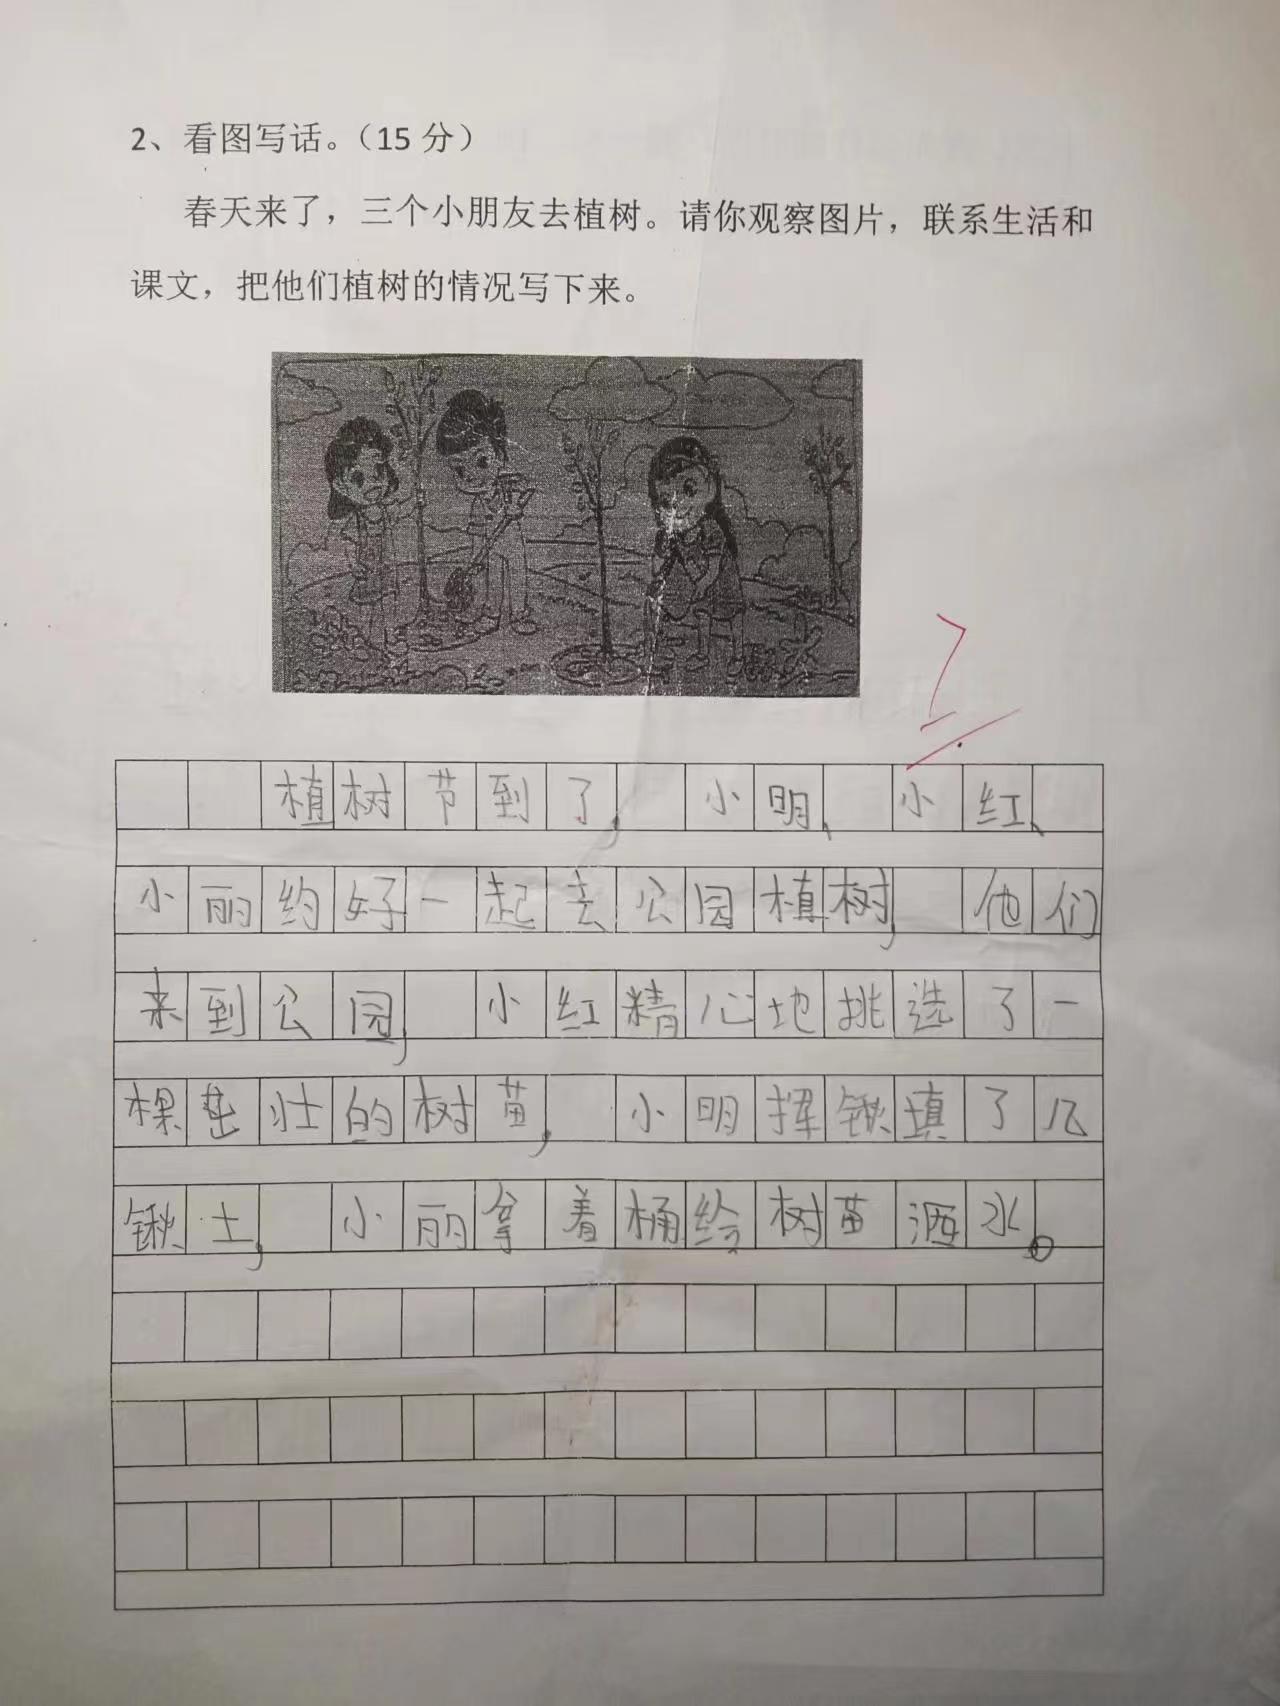 2、看图写话。（15 分）
春天来了，三个小朋友去植树。请你观察图片，联系生活和
课文，把他们植树的情况写下来。
7
植树节到了，小明、小红、
小丽约好一起去公园植树，他们
来到公园，小红精心地挑选了一
棵茁壮的树苗，小明挥锹填了几
锹土，小丽拿着桶给树苗洒水。